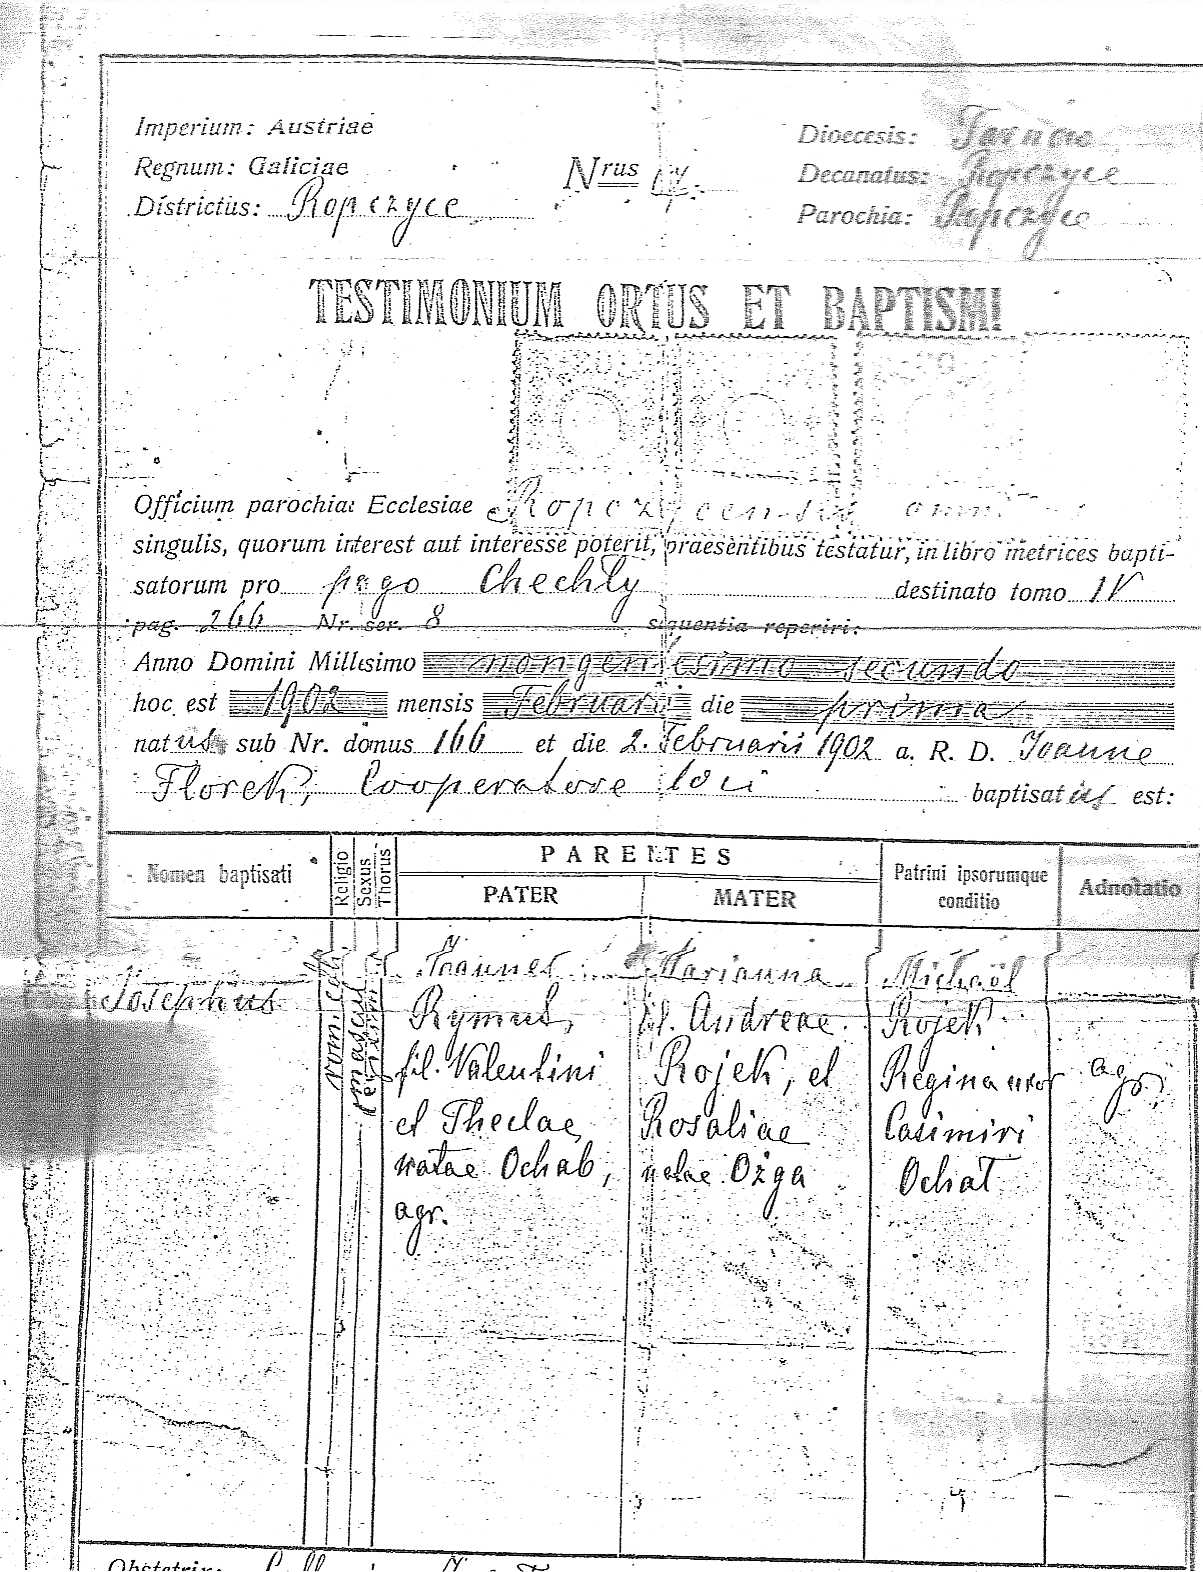 Imperium: Austriae
Regnum: Galiciae
Districtus: Ropczyce
Nrus
Dioecesis:
Decanatus: Ropczyce
Parochia: Ropczyce
TESTIMONIUM ORTUS ET BAPTISMI
Officium parochiae Ecclesiae Ropczycensis
singulis, quorum interest aut interesse poterit, praesentibus testatur, in libro metrices bapti-
satorum pro pago Chechly destinato tomo IV
pag. 266 Nr. ser. 8 sequentia reperiri:
Anno Domini Millesimo nongentesimo secundo
hoc est 1902 mensis Februarii die prima
natus sub Nr. domus 166 et die 2. Februarii 1902 a. R. D. Joanne
Florek, Cooperatore loci baptisatus est:
Nomen baptisati
Religio
Sexus
Thorus
PARENTES
PATER
MATER
Patrini ipsorumque
conditio
Adnotatio
Josephus
rom. cath.
Joannes
Rymut,
fil. Valentini
et Theclae
natae Ochab,
agr.
Marianna
fil. Andreae
Rojek, et
Rosaliae
natae Ożga
Michaël
Rojek
Regina uxor
Casimiri
Ochab
agr.
Obstetrix: